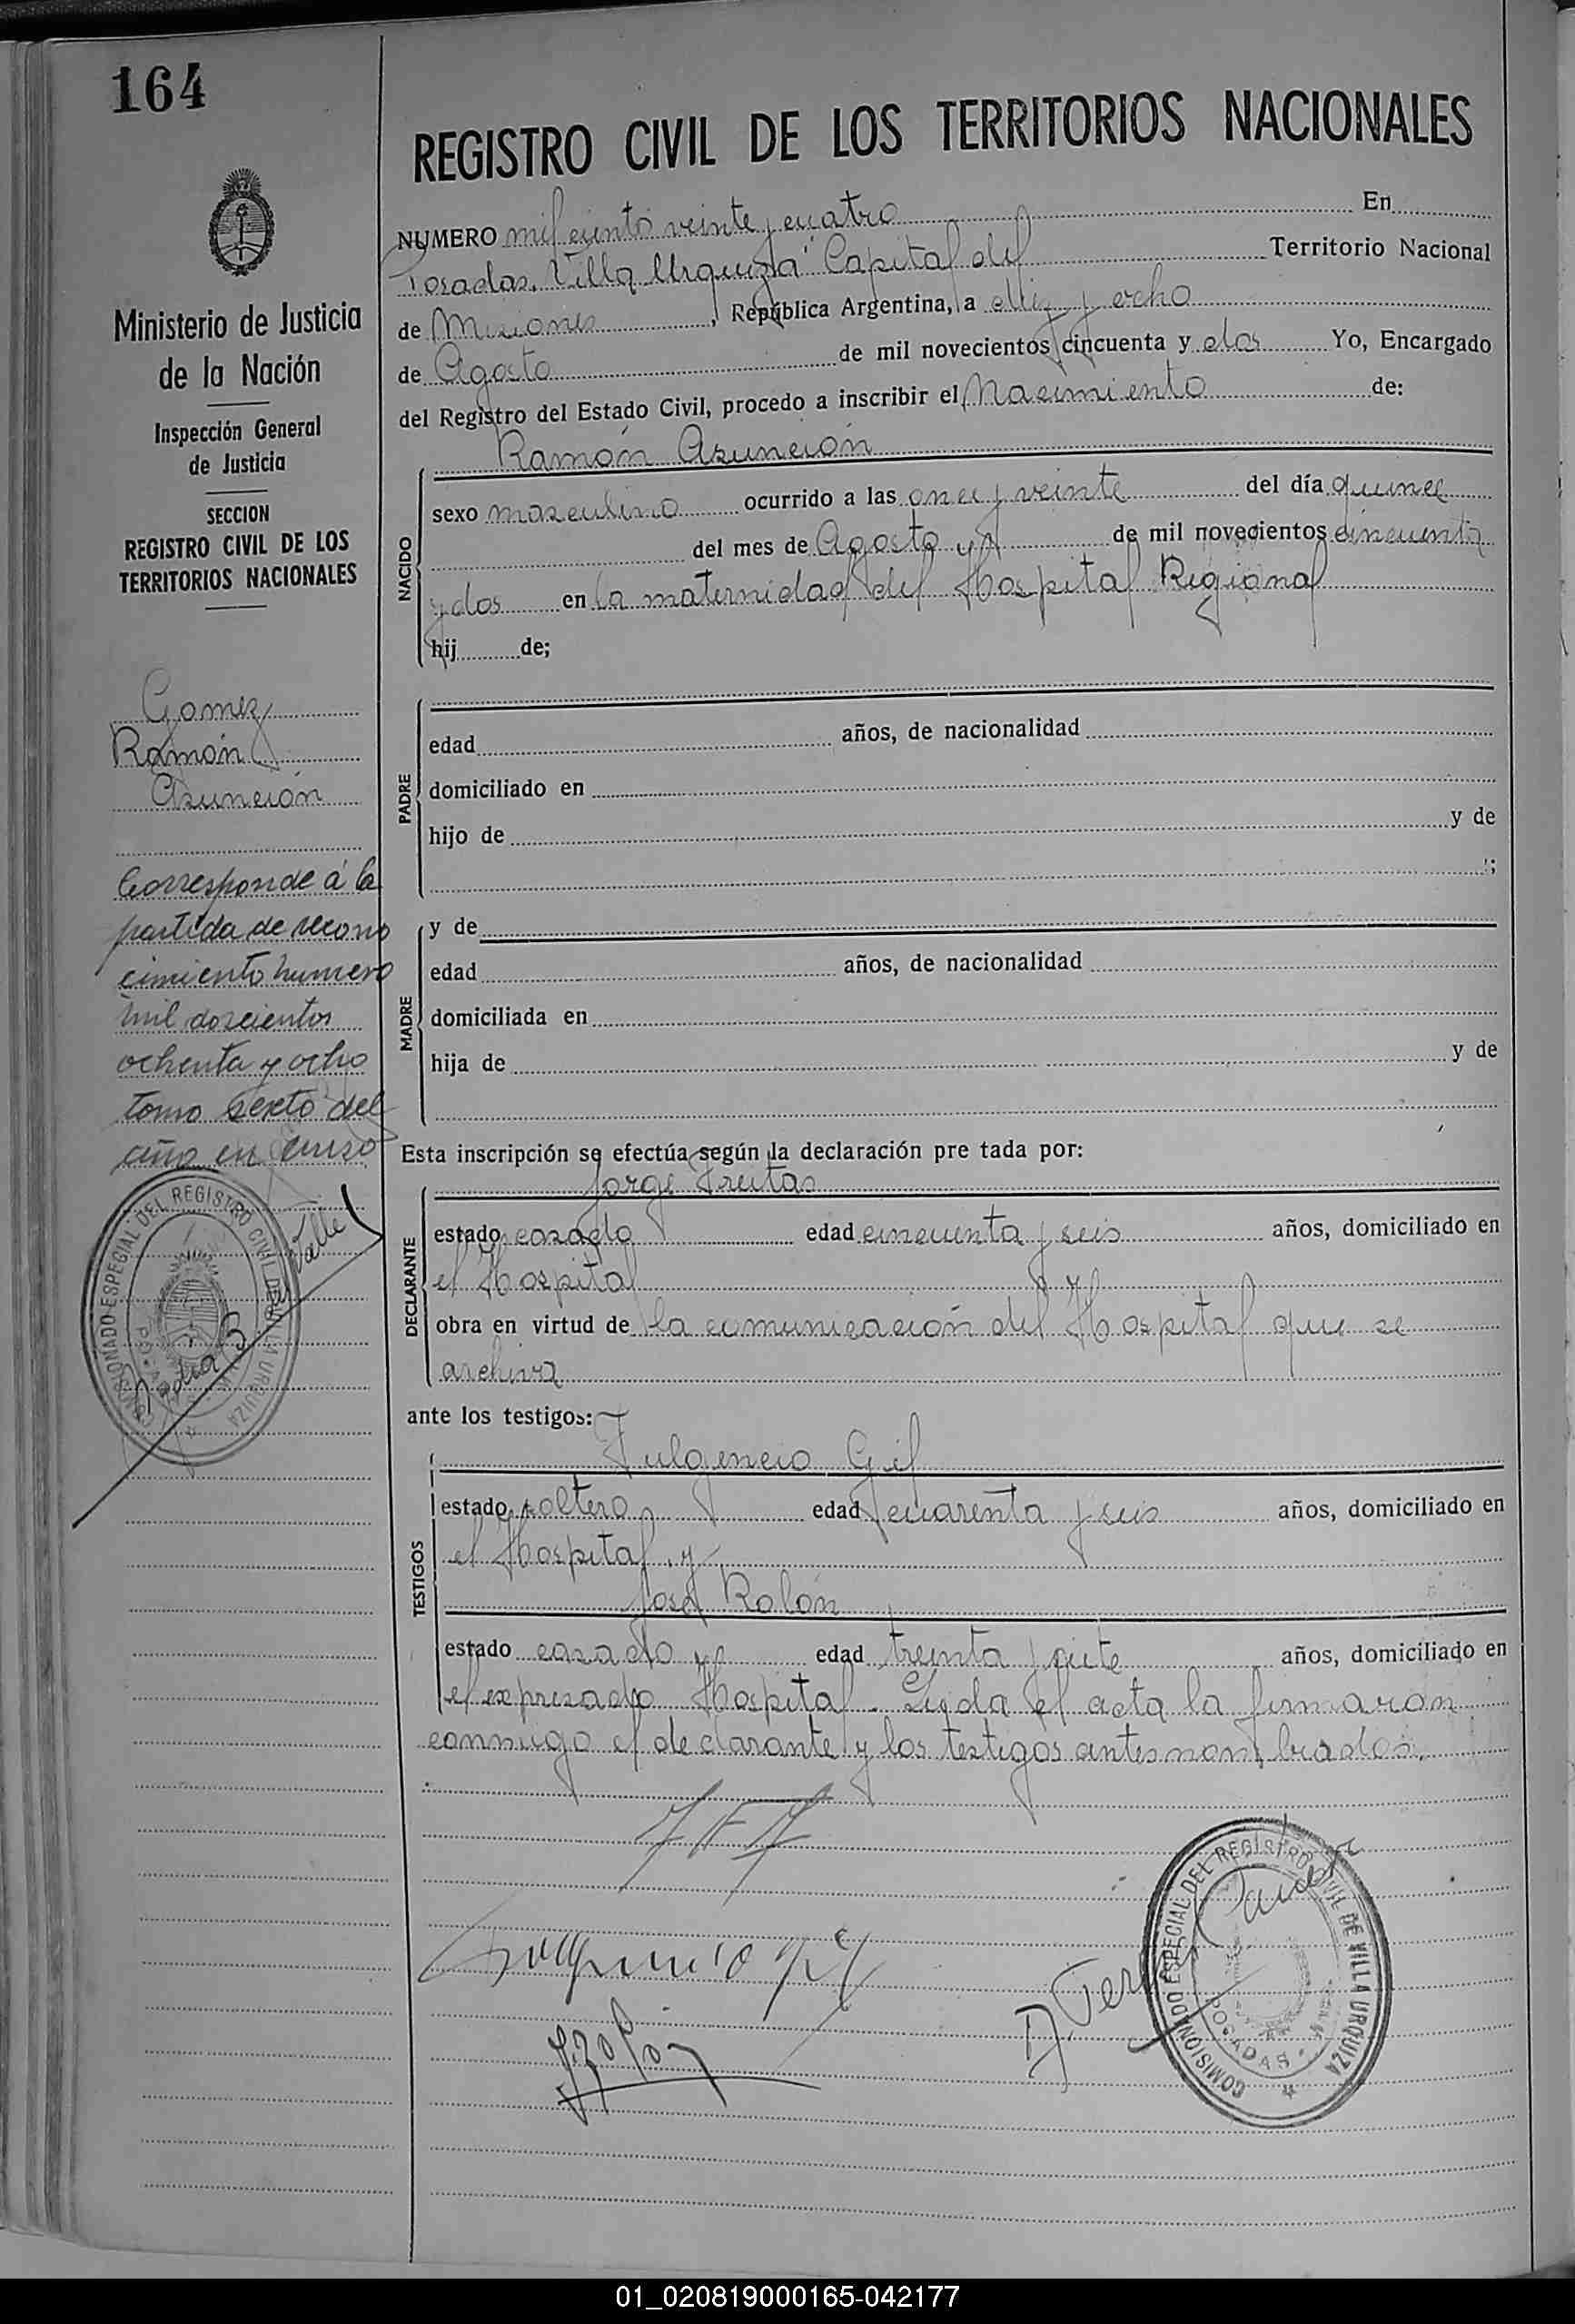 164
REGISTRO CIVIL DE LOS TERRITORIOS NACIONALES
Ministerio de Justicia
de la Nación
Inspección General
de Justicia
SECCION
REGISTRO CIVIL DE LOS
TERRITORIOS NACIONALES
Gomez
Ramón
Asunción
Corresponde á la
partida de recono
cimiento numero
mil doscientos
ochenta y ocho
tomo sexto del
año en curso
COMISIONADO ESPECIAL DEL REGISTRO CIVIL DE VILLA URQUIZA
POSADAS
NUMERO mil ciento veinte y cuatro En
Posadas, Villa Urquiza Capital del Territorio Nacional
de Misiones, República Argentina, a diez y ocho
de Agosto de mil novecientos cincuenta y dos Yo, Encargado
del Registro del Estado Civil, procedo a inscribir el Nacimiento de:
NACIDO
Ramón Asunción
sexo masculino ocurrido a las once y veinte del día quince
del mes de Agosto de mil novecientos cincuenta
y dos en la maternidad del Hospital Regional
hij de;
PADRE
edad años, de nacionalidad
domiciliado en
hijo de y de
;
MADRE
y de
edad años, de nacionalidad
domiciliada en
hija de y de
Esta inscripción se efectúa según la declaración pre tada por:
DECLARANTE
Jorge Freitas
estado casado edad cincuenta y seis años, domiciliado en
el Hospital
obra en virtud de la comunicación del Hospital que se
archiva
ante los testigos:
TESTIGOS
Fulgencio Gil
estado soltero edad cuarenta y seis años, domiciliado en
el Hospital y
José Rolón
estado casado edad treinta y siete años, domiciliado en
el expresado Hospital. Leyda el acta la firmaron
conmigo el declarante y los testigos antes nombrados.
Fulgencio Gil
J. Rolón
COMISIONADO ESPECIAL DEL REGISTRO CIVIL DE VILLA URQUIZA
POSADAS
01_020819000165-042177